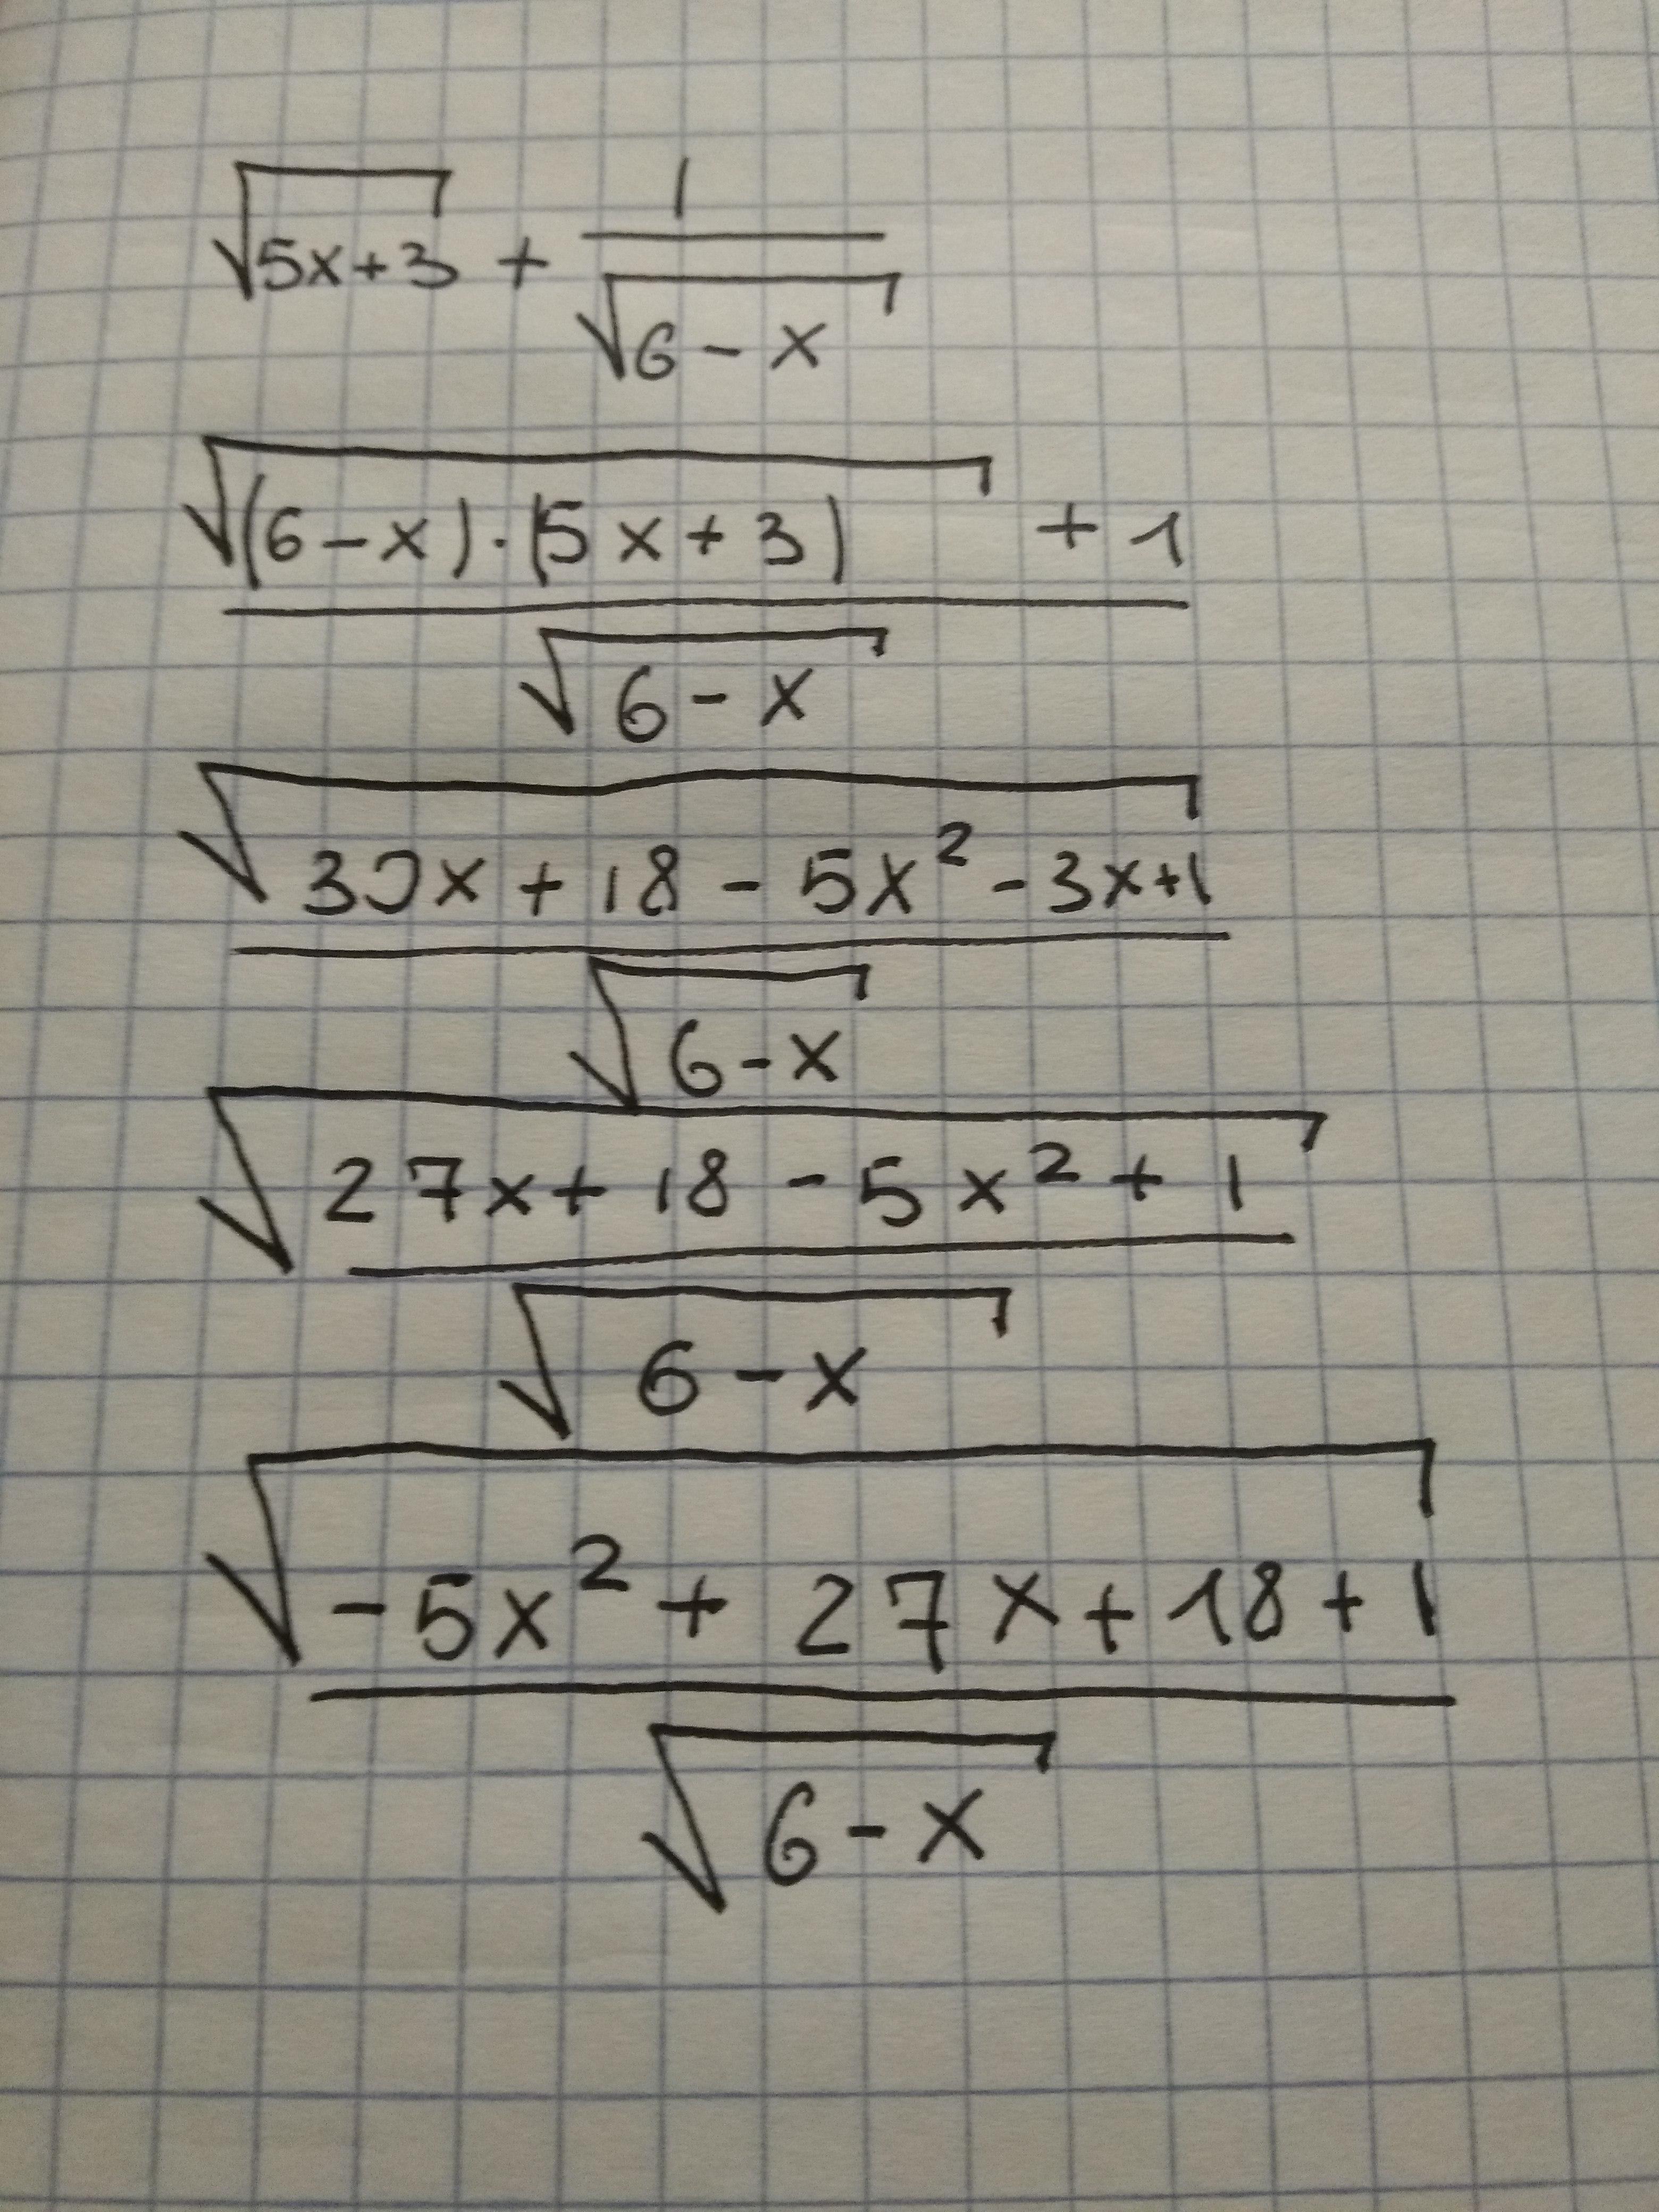 √(5x+3) + 1/√(6-x)
(√((6-x)·(5x+3)) + 1)/√(6-x)
√(30x+18-5x²-3x+1)/√(6-x)
√(27x+18-5x²+1)/√(6-x)
√(-5x²+27x+18+1)/√(6-x)